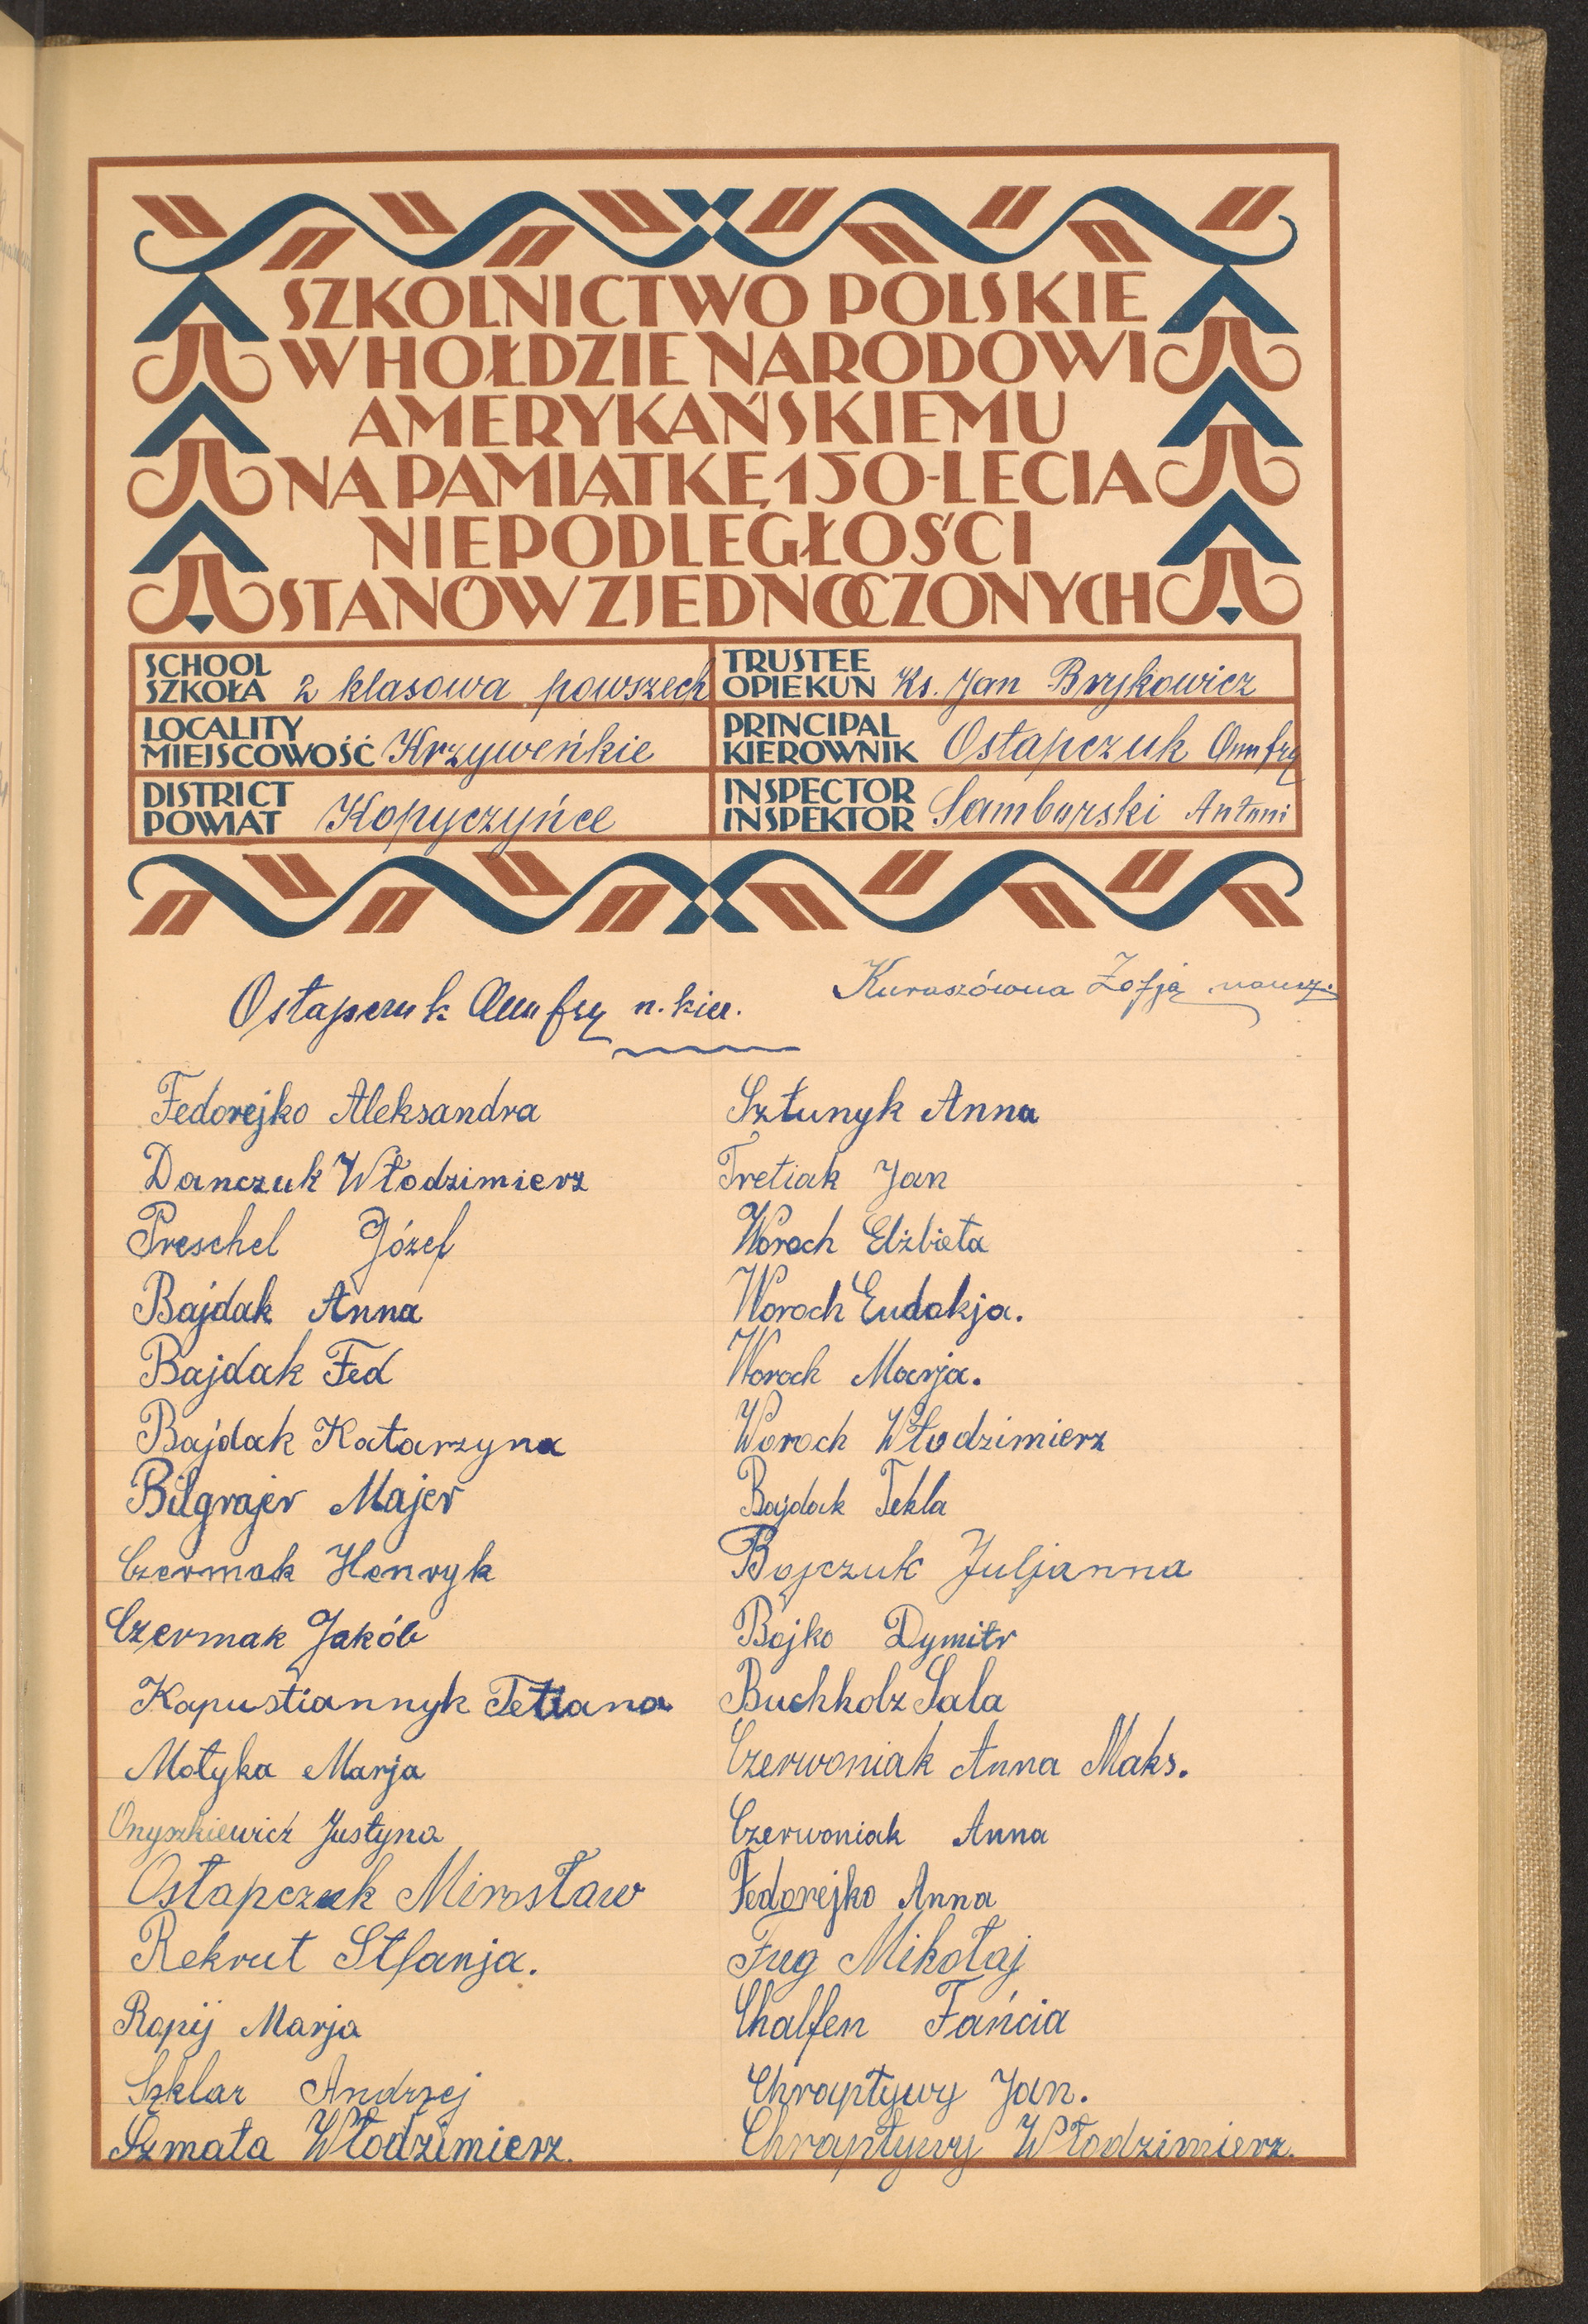 SZKOLNICTWO POLSKIE
W HOŁDZIE NARODOWI
AMERYKAŃSKIEMU
NA PAMIĄTKĘ 150-LECIA
NIEPODLEGŁOŚCI
STANÓW ZJEDNOCZONYCH
SCHOOL
SZKOŁA 2 klasowa powszech
LOCALITY
MIEJSCOWOŚĆ Krzyweńkie
DISTRICT
POWIAT Kopyczyńce
TRUSTEE
OPIEKUN Ks. Jan Brykowicz
PRINCIPAL
KIEROWNIK Ostapczuk Onufry
INSPECTOR
INSPEKTOR Samborski Antoni
Ostapczuk Onufry n. kier.
Kuraszówna Zofja naucz.
Fedorejko Aleksandra
Danczuk Włodzimierz
Preschel Józef
Bajdak Anna
Bajdak Fed
Bajdak Katarzyna
Bilgrajer Majer
Czermak Henryk
Czermak Jakób
Kapustiannyk Tetiana
Motyka Marja
Onyszkiewicz Justyna
Ostapczuk Mirosław
Rekrut Stfanja.
Ropij Marja
Szklar Andrzej
Szmata Włodzimierz.
Sztunyk Anna
Tretiak Jan
Woroch Elżbieta
Woroch Eudokja.
Woroch Marja.
Woroch Włodzimierz
Bajdak Tekla
Bojczuk Juljanna
Bojko Dymitr
Buchholz Sala
Czerwoniak Anna Maks.
Czerwoniak Anna
Fedorejko Anna
Fug Mikołaj
Chalfen Fańcia
Chraptywy Jan.
Chraptywy Włodzimierz.